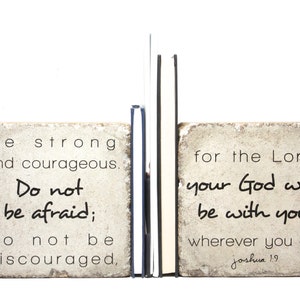 e strong
nd courageous.
Do not
be afraid;
o not be
iscouraged,
for the Lor
your God w
be with yo
wherever you
joshua 1:9